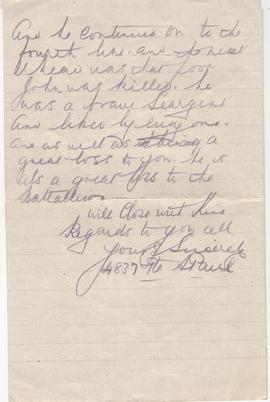 And he continues on to the
fourth line. and
I hear was that poor
John was killed. he
was a brave Seargent
And liked by every one.
And as well as a
great loss to you. he is
a great loss to the
Battallion
will Close with Kind
Regards to you all
Yours Sincerely
4837 Pte